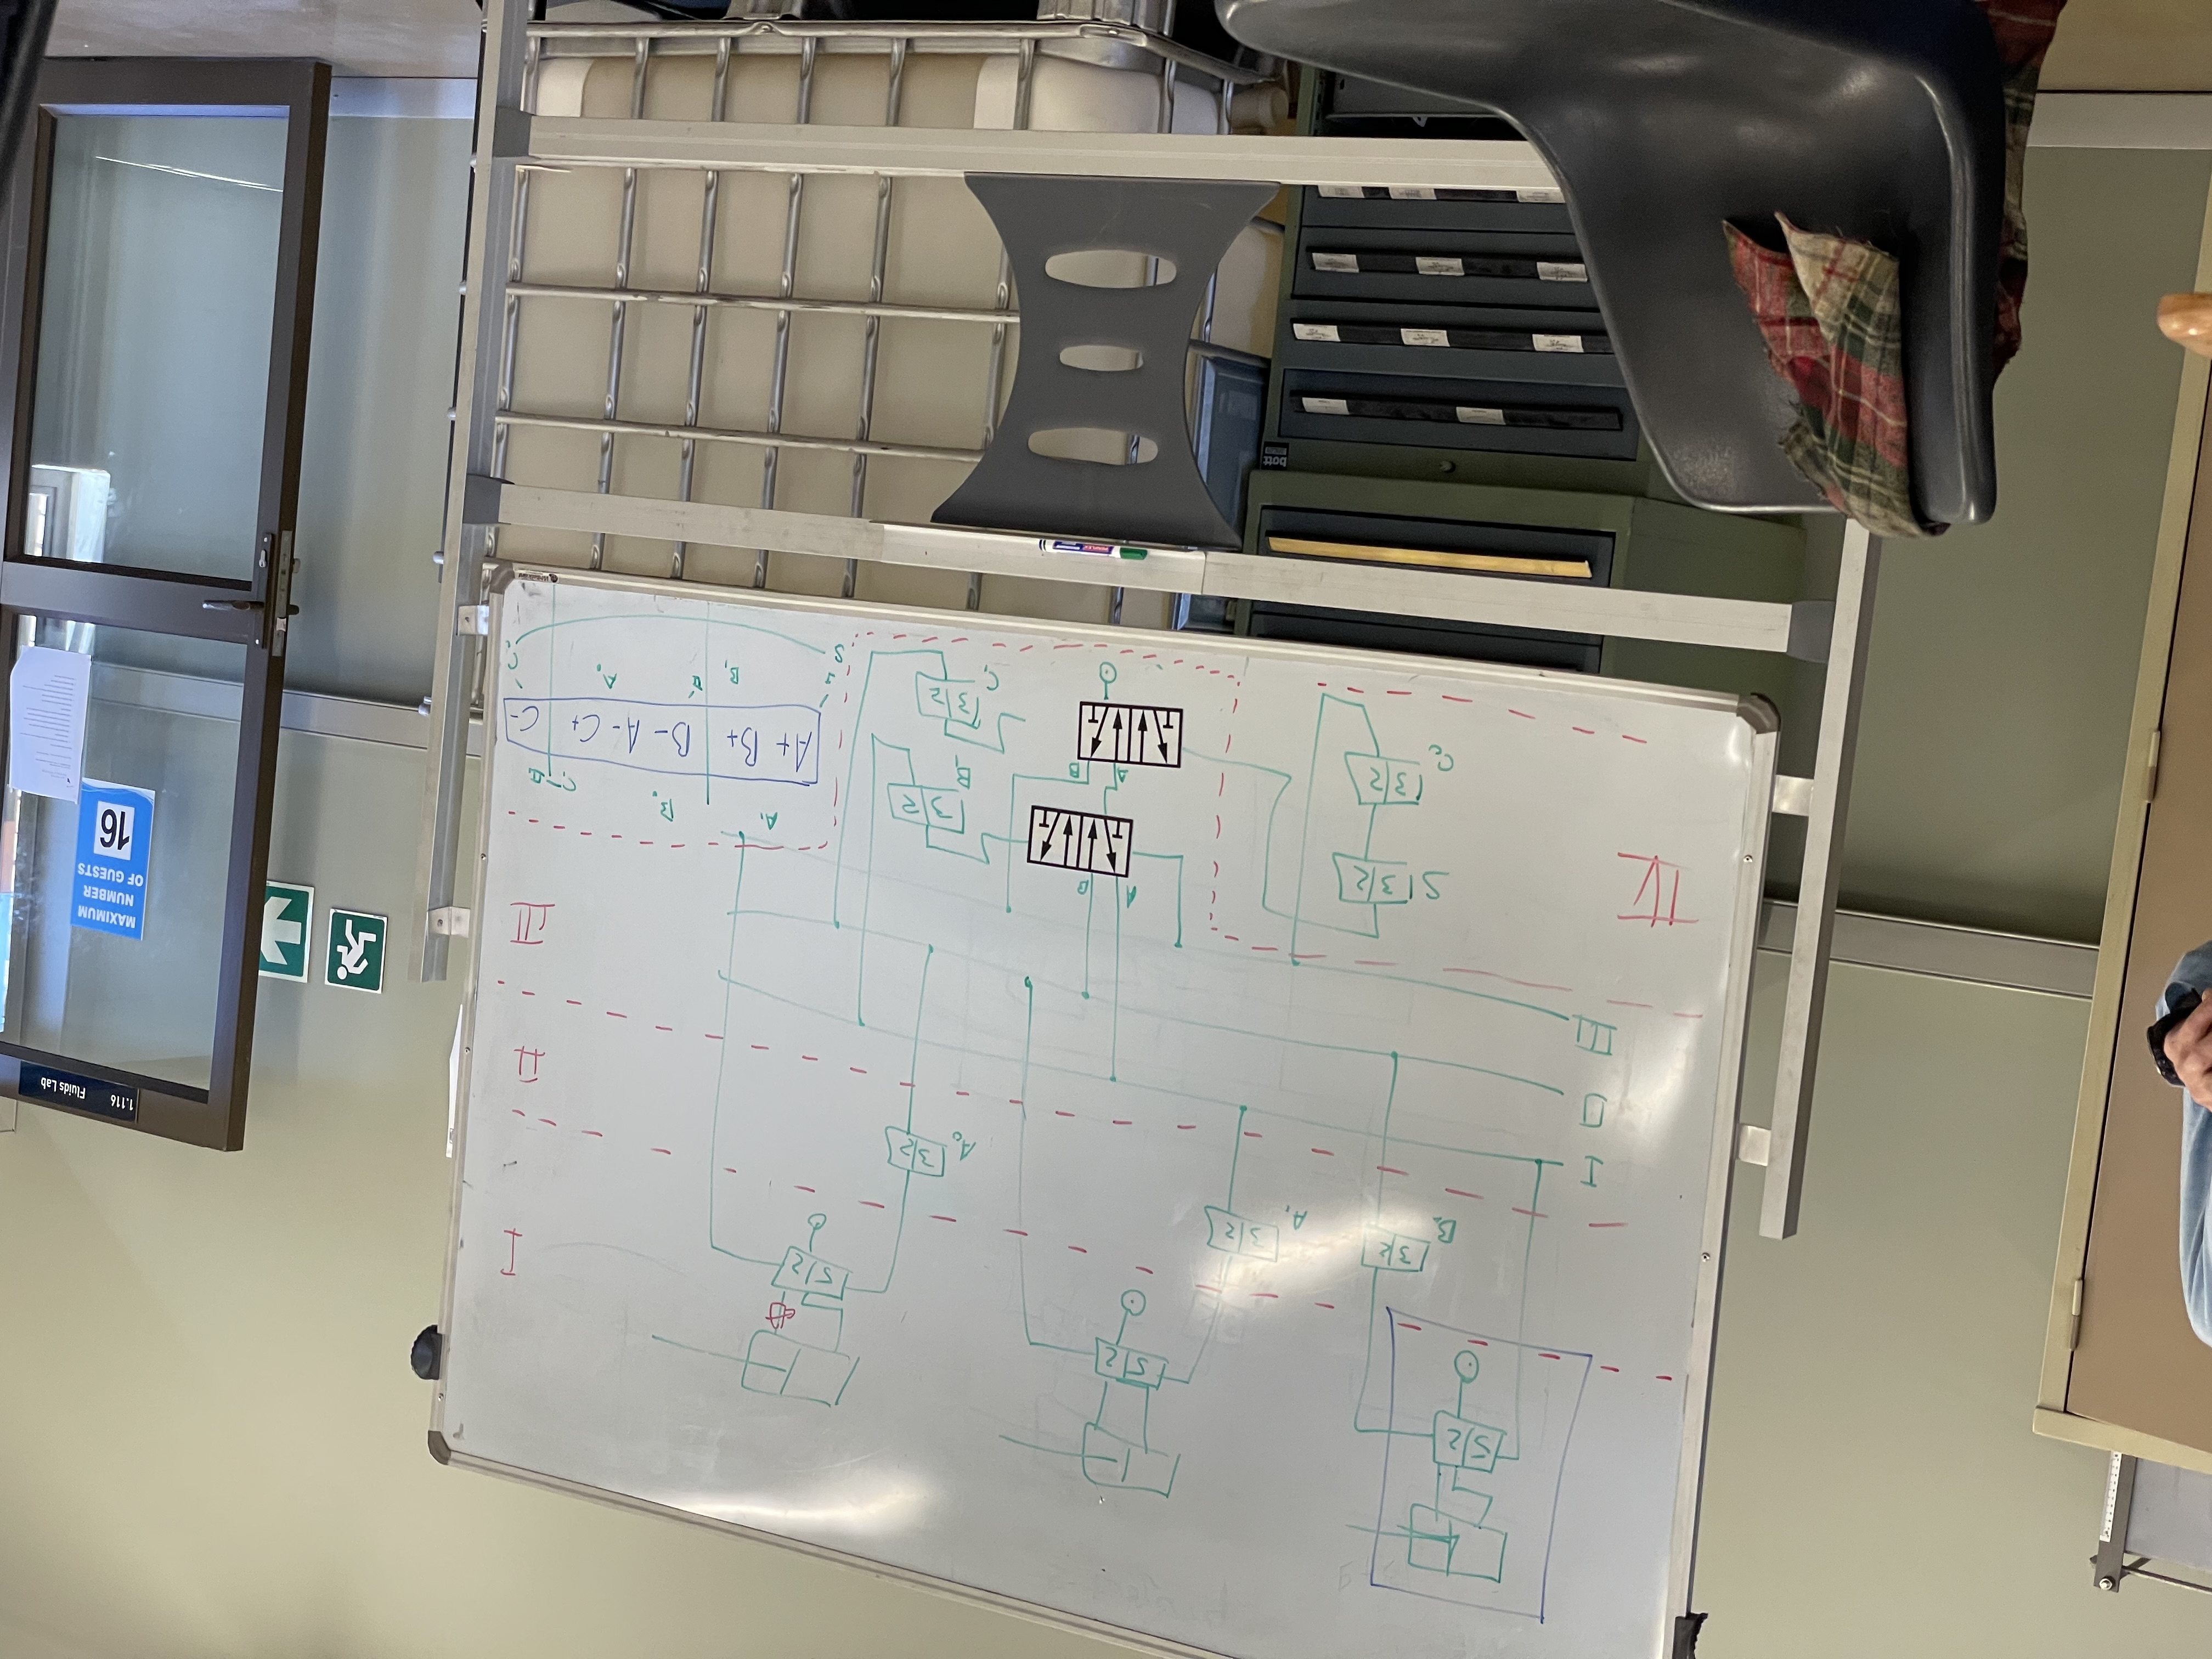 5/2
5/2
5/2
I
3/2
B₀
3/2
A₁
3/2
A₀
I
II
III
II
III
IV
S 3/2
3/2
C₀
A B
A B
3/2
B₁
3/2
C₁
A₁ B₀
A+ B+ B- A- C+ C-
B₁ II A₀
S
1.116 Fluids Lab
MAXIMUM
NUMBER
OF GUESTS
16
bott